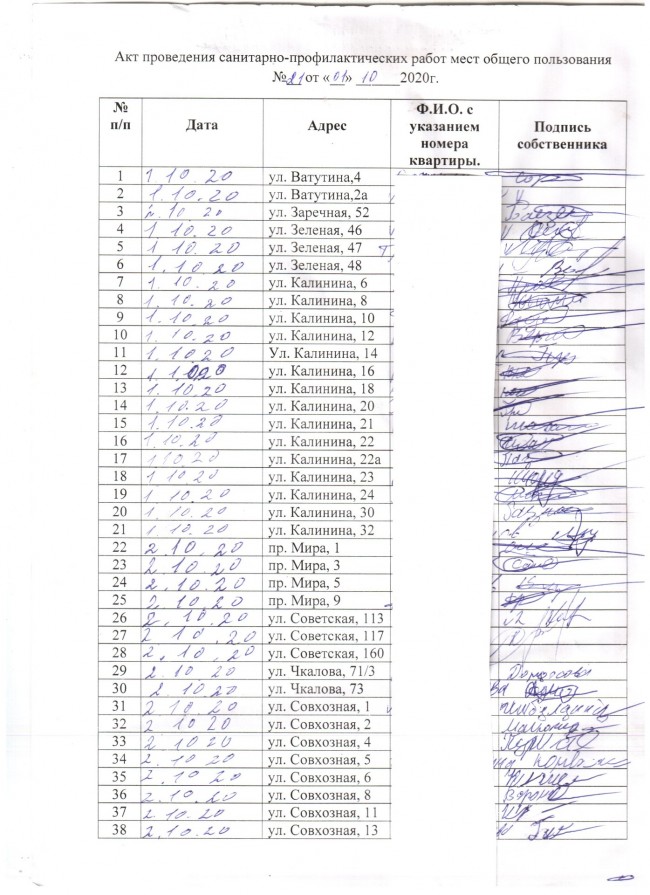 Акт проведения санитарно-профилактических работ мест общего пользования
№21 от «01» 10 2020г.
№ п/п Дата Адрес Ф.И.О. с указанием номера квартиры. Подпись собственника
1 1.10.20 ул. Ватутина,4
2 1.10.20 ул. Ватутина,2а
3 2.10.20 ул. Заречная, 52
4 1.10.20 ул. Зеленая, 46
5 1.10.20 ул. Зеленая, 47
6 1.10.20 ул. Зеленая, 48
7 1.10.20 ул. Калинина, 6
8 1.10.20 ул. Калинина, 8
9 1.10.20 ул. Калинина, 10
10 1.10.20 ул. Калинина, 12
11 1.10.20 Ул. Калинина, 14
12 1.10.20 ул. Калинина, 16
13 1.10.20 ул. Калинина, 18
14 1.10.20 ул. Калинина, 20
15 1.10.20 ул. Калинина, 21
16 1.10.20 ул. Калинина, 22
17 1.10.20 ул. Калинина, 22а
18 1.10.20 ул. Калинина, 23
19 1.10.20 ул. Калинина, 24
20 1.10.20 ул. Калинина, 30
21 1.10.20 ул. Калинина, 32
22 2.10.20 пр. Мира, 1
23 2.10.20 пр. Мира, 3
24 2.10.20 пр. Мира, 5
25 2.10.20 пр. Мира, 9
26 2.10.20 ул. Советская, 113
27 2.10.20 ул. Советская, 117
28 2.10.20 ул. Советская, 160
29 2.10.20 ул. Чкалова, 71/3
30 2.10.20 ул. Чкалова, 73
31 2.10.20 ул. Совхозная, 1
32 2.10.20 ул. Совхозная, 2
33 2.10.20 ул. Совхозная, 4
34 2.10.20 ул. Совхозная, 5
35 2.10.20 ул. Совхозная, 6
36 2.10.20 ул. Совхозная, 8
37 2.10.20 ул. Совхозная, 11
38 2.10.20 ул. Совхозная, 13